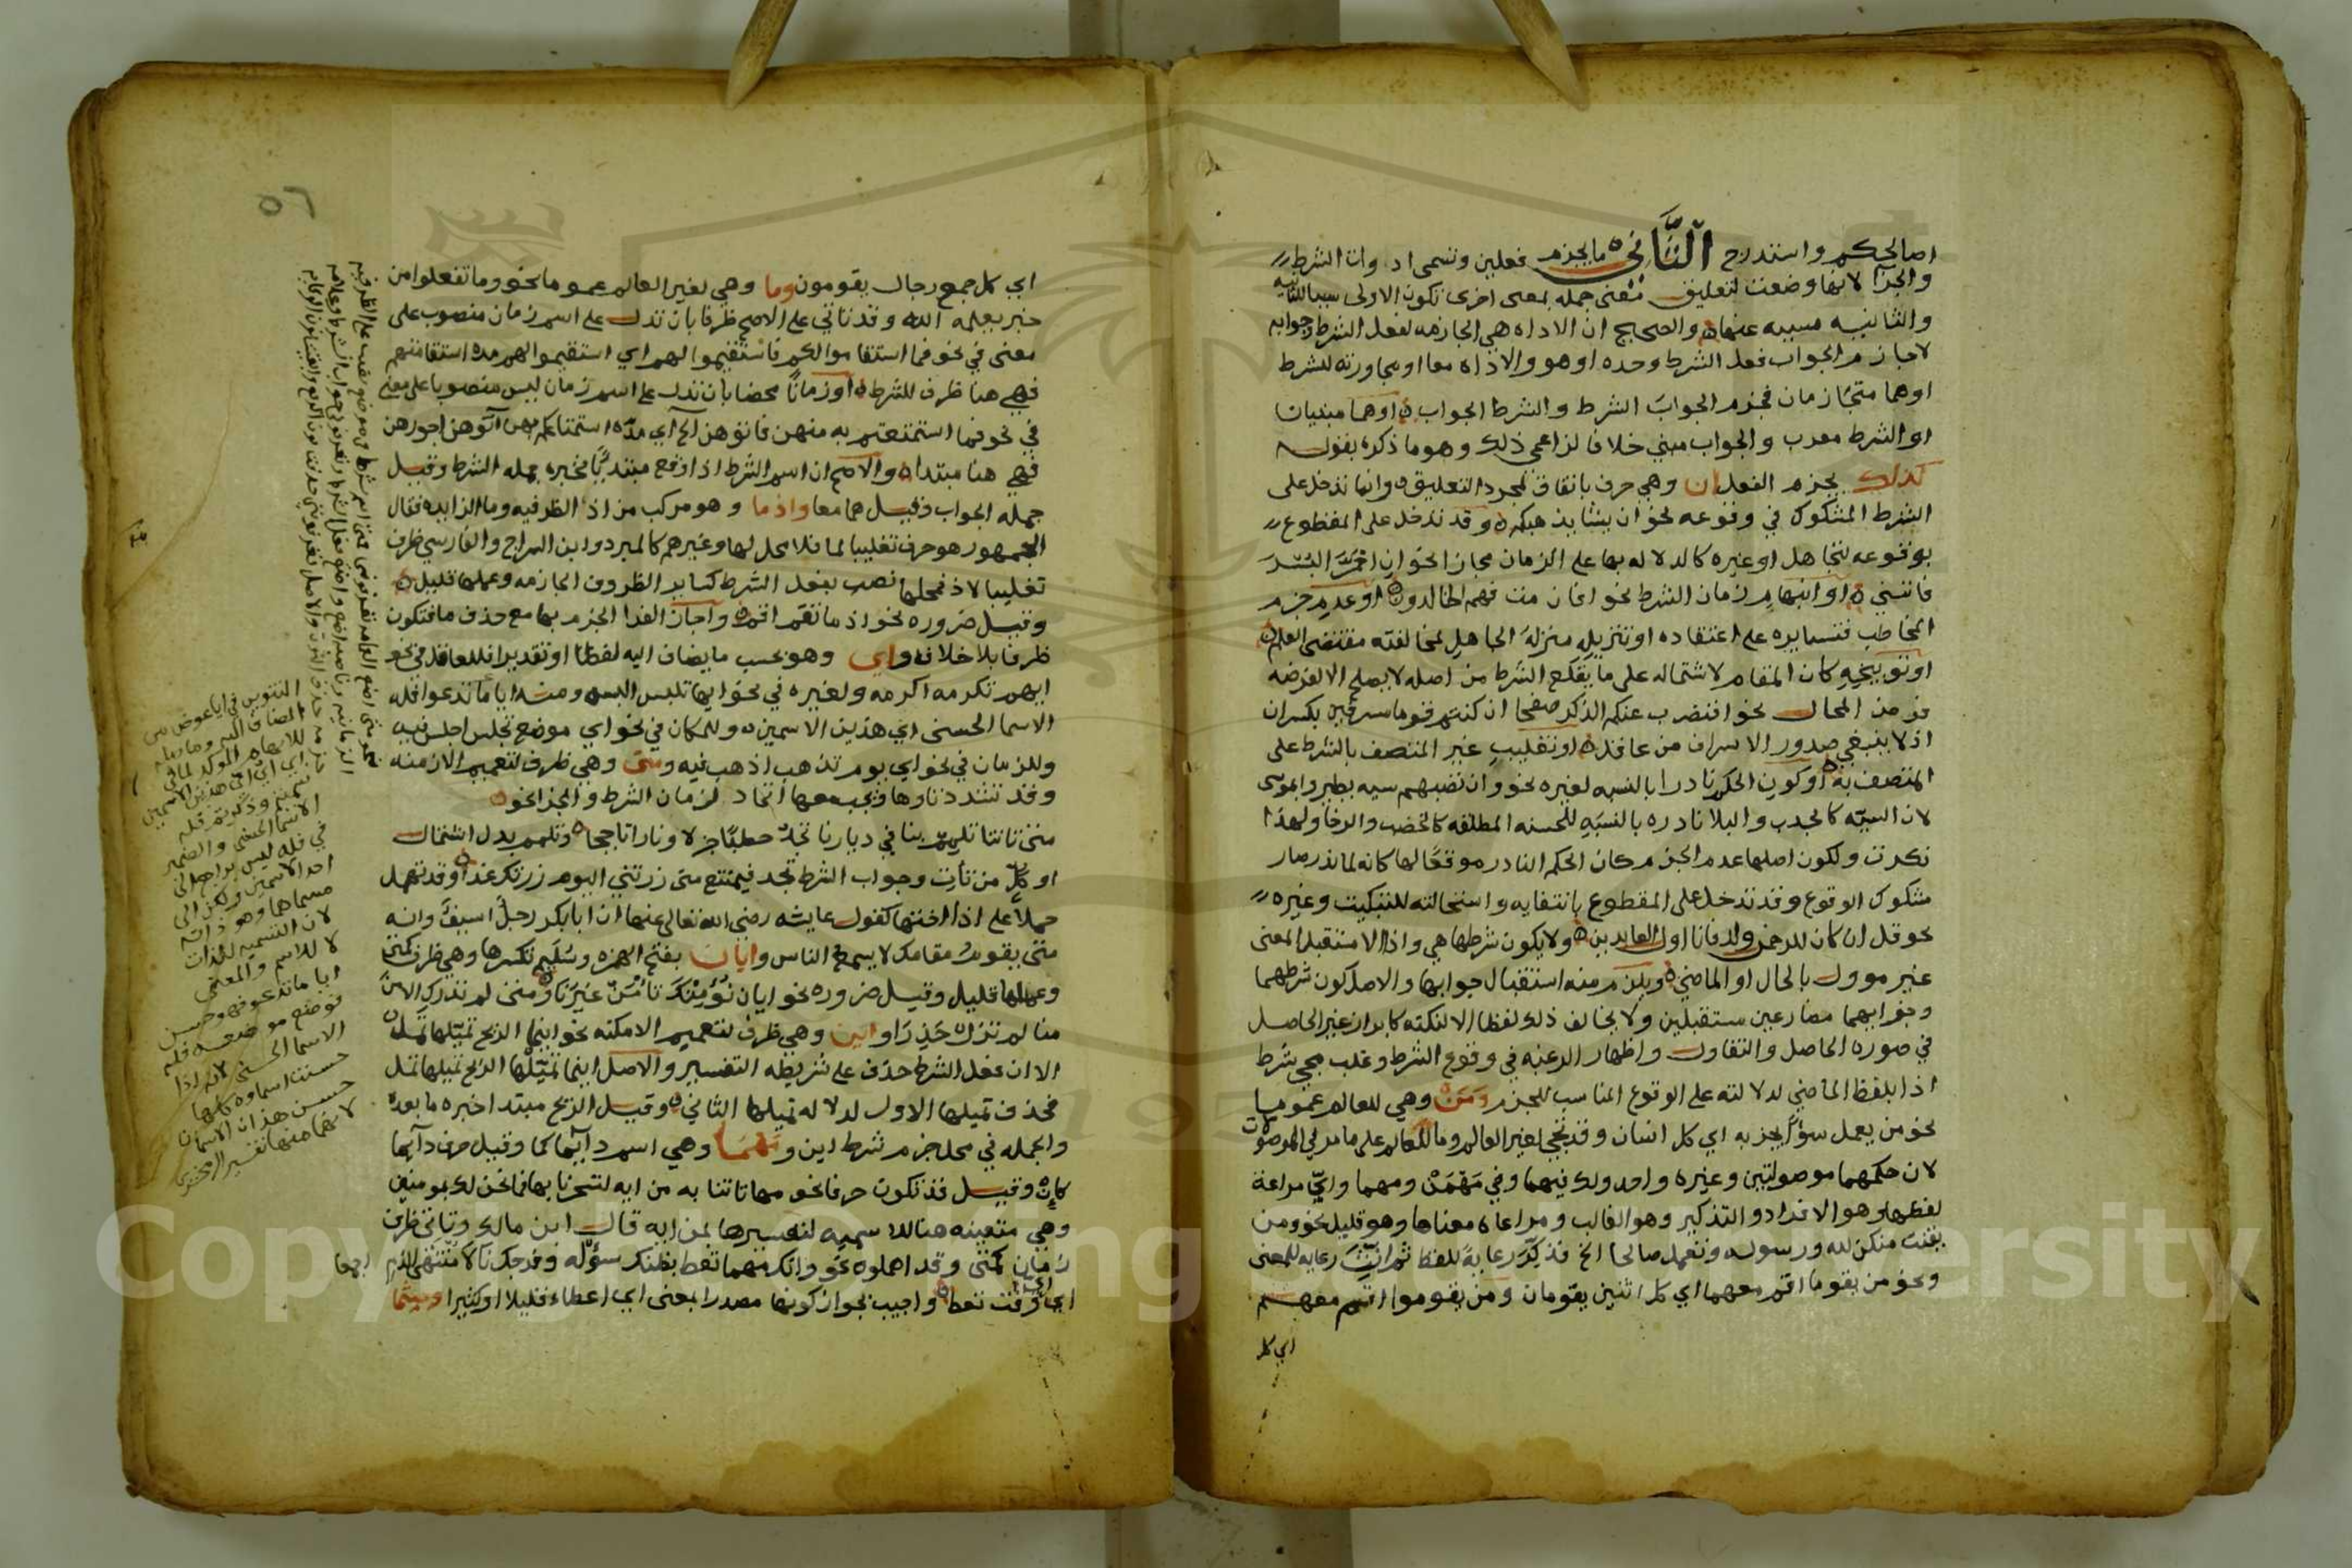 اصالحكم واستدرج الثَّاني ما يجزم فعلين وتسمى ادوات الشرط
والجزا لانها وضعت لتعليق معنى جمله بمعنى اخرى تكون الاولى سببا للثانيه
والثانيه مسببه عنها والصحيح ان الاداه هي الجازمه لفعل الشرط وجوابه
لا جازم الجواب فعل الشرط وحده او هو والاداه معا او مجاورته للشرط
او هما متجازمان فجزم الجوابَ الشرط والشرط الجواب او هما مبنيان
او الشرط معرب والجواب مبني خلافا لزاعمي ذلك وهو ما ذكره بقوله
كذلك يجزم الفعل ان وهي حرف باتفاق لمجرد التعليق وانما تدخل على
الشرط المشكوك في وقوعه نحو ان يشا يذهبكم وقد تدخل على المقطوع
بوقوعه لتجاهل او غيره كالدلاله بها على الزمان مجازا نحو ان احمرّ البسر
فاتني او ابهام زمان الشرط نحو افان مت فهم الخالدون او عدم جزم
المخاطب فتسايره على اعتقاده او تنزيله منزلة الجاهل لمخالفته مقتضى العلم
او توبيخه كان المقام لاشتماله على ما يقلع الشرط من اصله لا يصلح الا لفرضه
فرض المحال نحو افنضرب عنكم الذكر صفحا ان كنتم قوما مسرفين بكسر ان
اذ لا ينبغي صدور الاسراف من عاقل او تغليب غير المتصف بالشرط على
المتصف به او كون الحكم نادرا بالنسبه لغيره نحو وان تصبهم سيه يطيروا بموسى
لان السيّه كالجدب والبلا نادره بالنسبَهِ للحسنه المطلقه كالخصب والرخا ولهذا
نكرت ولكون اصلها عدم الجزم كان الحكم النادر موقعًا لها كانه لما ندر صار
مشكوك الوقوع وقد تدخل على المقطوع بانتفايه واستحالته للتبكيت وغيره
نحو قل ان كان للرحمن ولد فانا اول العابدين ولا يكون شرطها هي واذا الا مستقبل المعنى
غير موول بالحال او الماضي ويلزم منه استقبال جوابها والاصل كون شرطهما
وجوابهما مضارعين مستقبلين ولا يخالف ذلك لفظا الا لنكته كابراز غير الحاصل
في صوره الحاصل والتفاول واظهار الرغبه في وقوع الشرط وغلب مجي شرط
اذا بلفظ الماضي لدلالته على الوقوع المناسب للجزم ومَن وهي للعالم عموما
نحو من يعمل سوًا يجز به اي كل انسان وقد تجي لغير العالم وما للعالم على ما مر في الموصولات
لان حكمهما موصولتين وغيره واحد ولك فيهما وفي مَهْمَنْ ومهما وايّ مراعة
لفظها وهو الافراد والتذكير وهو الغالب ومراعاه معناها وهو قليل نحو ومن
يقنت منكن لله ورسوله وتعمل صالحا الخ فذكّر رعايةً للفظ ثم انّث رعايه للمعنى
ونحو من يقوما اقم معهما اي كل اثنين يقومان ومن يقوموا اقم معهم
اي كل
٥٦
اي كل جمع رجال يقومون وما وهي لغير العالم عموما نحو وما تفعلوا من
خير يعلمه الله وقد تاتي على الاصح ظرفا بان تدل على اسم زمان منصوب على
معنى في نحو فما استقاموا لكم فاستقيموا لهم اي استقيموا لهم مده استقامتهم
فهي هنا ظرف للشرط او زمانًا محضا بان تدل على اسم زمان ليس منصوبا على معنى
في نحو فما استمتعتم به منهن فاتوهن الخ اي مدّه استمتاعكم بهن آتوهن اجورهن
فهي هنا مبتدا والاصح ان اسم الشرط اذا وقع مبتدًا فخبره جمله الشرط وقيل
جمله الجواب وقيل هما معا واذما وهو مركب من اذ الظرفيه وما الزايده فقال
الجمهور هو حرف تغليبا لما فلا محل لها وغيرهم كالمبرد وابن السراج والفارسي ظرف
تغليبا لاذ فمحلها نصب بفعل الشرط كساير الظروف الجازمه وعملها قليل
وقيل ضروره نحو اذ ما تقم اقم واجاز الفرا الجزم بها مع حذف ما فتكون
ظرفا بلا خلاف واي وهو بحسب ما يضاف اليه لفظا او تقديرا فللعاقل في نحو
ايهم تكرمه اكرمه ولغيره في نحو ايها تلبس البس ومنه ايا ما تدعوا فله
الاسما الحسنى اي هذين الاسمين وللمكان في نحو اي موضع تجلس اجلس فيه
وللزمان في نحو اي يوم تذهب اذهب فيه ومتى وهي ظرف لتعميم الازمنه
وقد تشدد تاوها ويجب معها اتحاد زمان الشرط والجزا نحو
متى تاتنا تلمم بنا في ديارنا تجد حطبًا جزلا ونارا تاججا وتلمم بدل اشتمال
او كلّ من تأت وجواب الشرط تجد فيمتنع متى زرتني اليوم زرتك غدا وقد تهمل
حملا على اذا اختها كقول عايشه رضي الله تعالى عنها ان ابا بكر رجلٌ اسيفٌ وانه
متى يقومُ مقامك لا يسمع الناس وايان بفتح الهمزه وسُليم تكسرها وهي ظرف كمتى
وعملها قليل وقيل ضروره نحو ايان نُؤْمِنْكَ تأمَنْ غيرَنا ومتى لم تدرك الامنَ
منا لم تزل حَذِرَا واين وهي ظرف لتعميم الامكنه نحو اينما الريح تميّلها تملْ
الا ان فعل الشرط حذف على شريطه التفسير والاصل اينما تميّلها الريح تميلها تمل
فحذف تميلها الاول لدلاله تميلها الثاني وقيل الريح مبتدا خبره ما بعده
والجمله في محل جزم شرط اين ومهما وهي اسم دايمًا كما وقيل حرف دآيما
كإن وقيل قد تكون حرفا نحو مهما تاتنا به من ايه لتسحرنا بها فما نحن لك بمومنين
وهي متعينه هنا للاسميه لتفسيرها بمن ايه قال ابن مالك وتاتي ظرف
زمان كمتى وقد اهملوه نحو وانك مهما تعط بطنك سؤله وفرجك نالا منتهى الذم اجمعا
اي اي وقت تعط واجيب بجواز كونها مصدرا بمعنى اي اعطاء قليلا او كثيرا وحيثما
التنوين في ايا عوض من
المضاف اليه وما صله
للابهام الموكد لما في
الاسما الحسنى والضمير
في فله ليس براجع الى
احد الاسمين ولكن الى
مسماهما وهو ذاته
لان التسميه للذات
لا للاسم والمعنى
ايا ما تدعو فهو حسن
فوضع موضعه فله
الاسما الحسنى لانه اذا
حسنت اسماوه كلها
حسن هذان الاسمان
لانهما منها تفسير الزمخشري